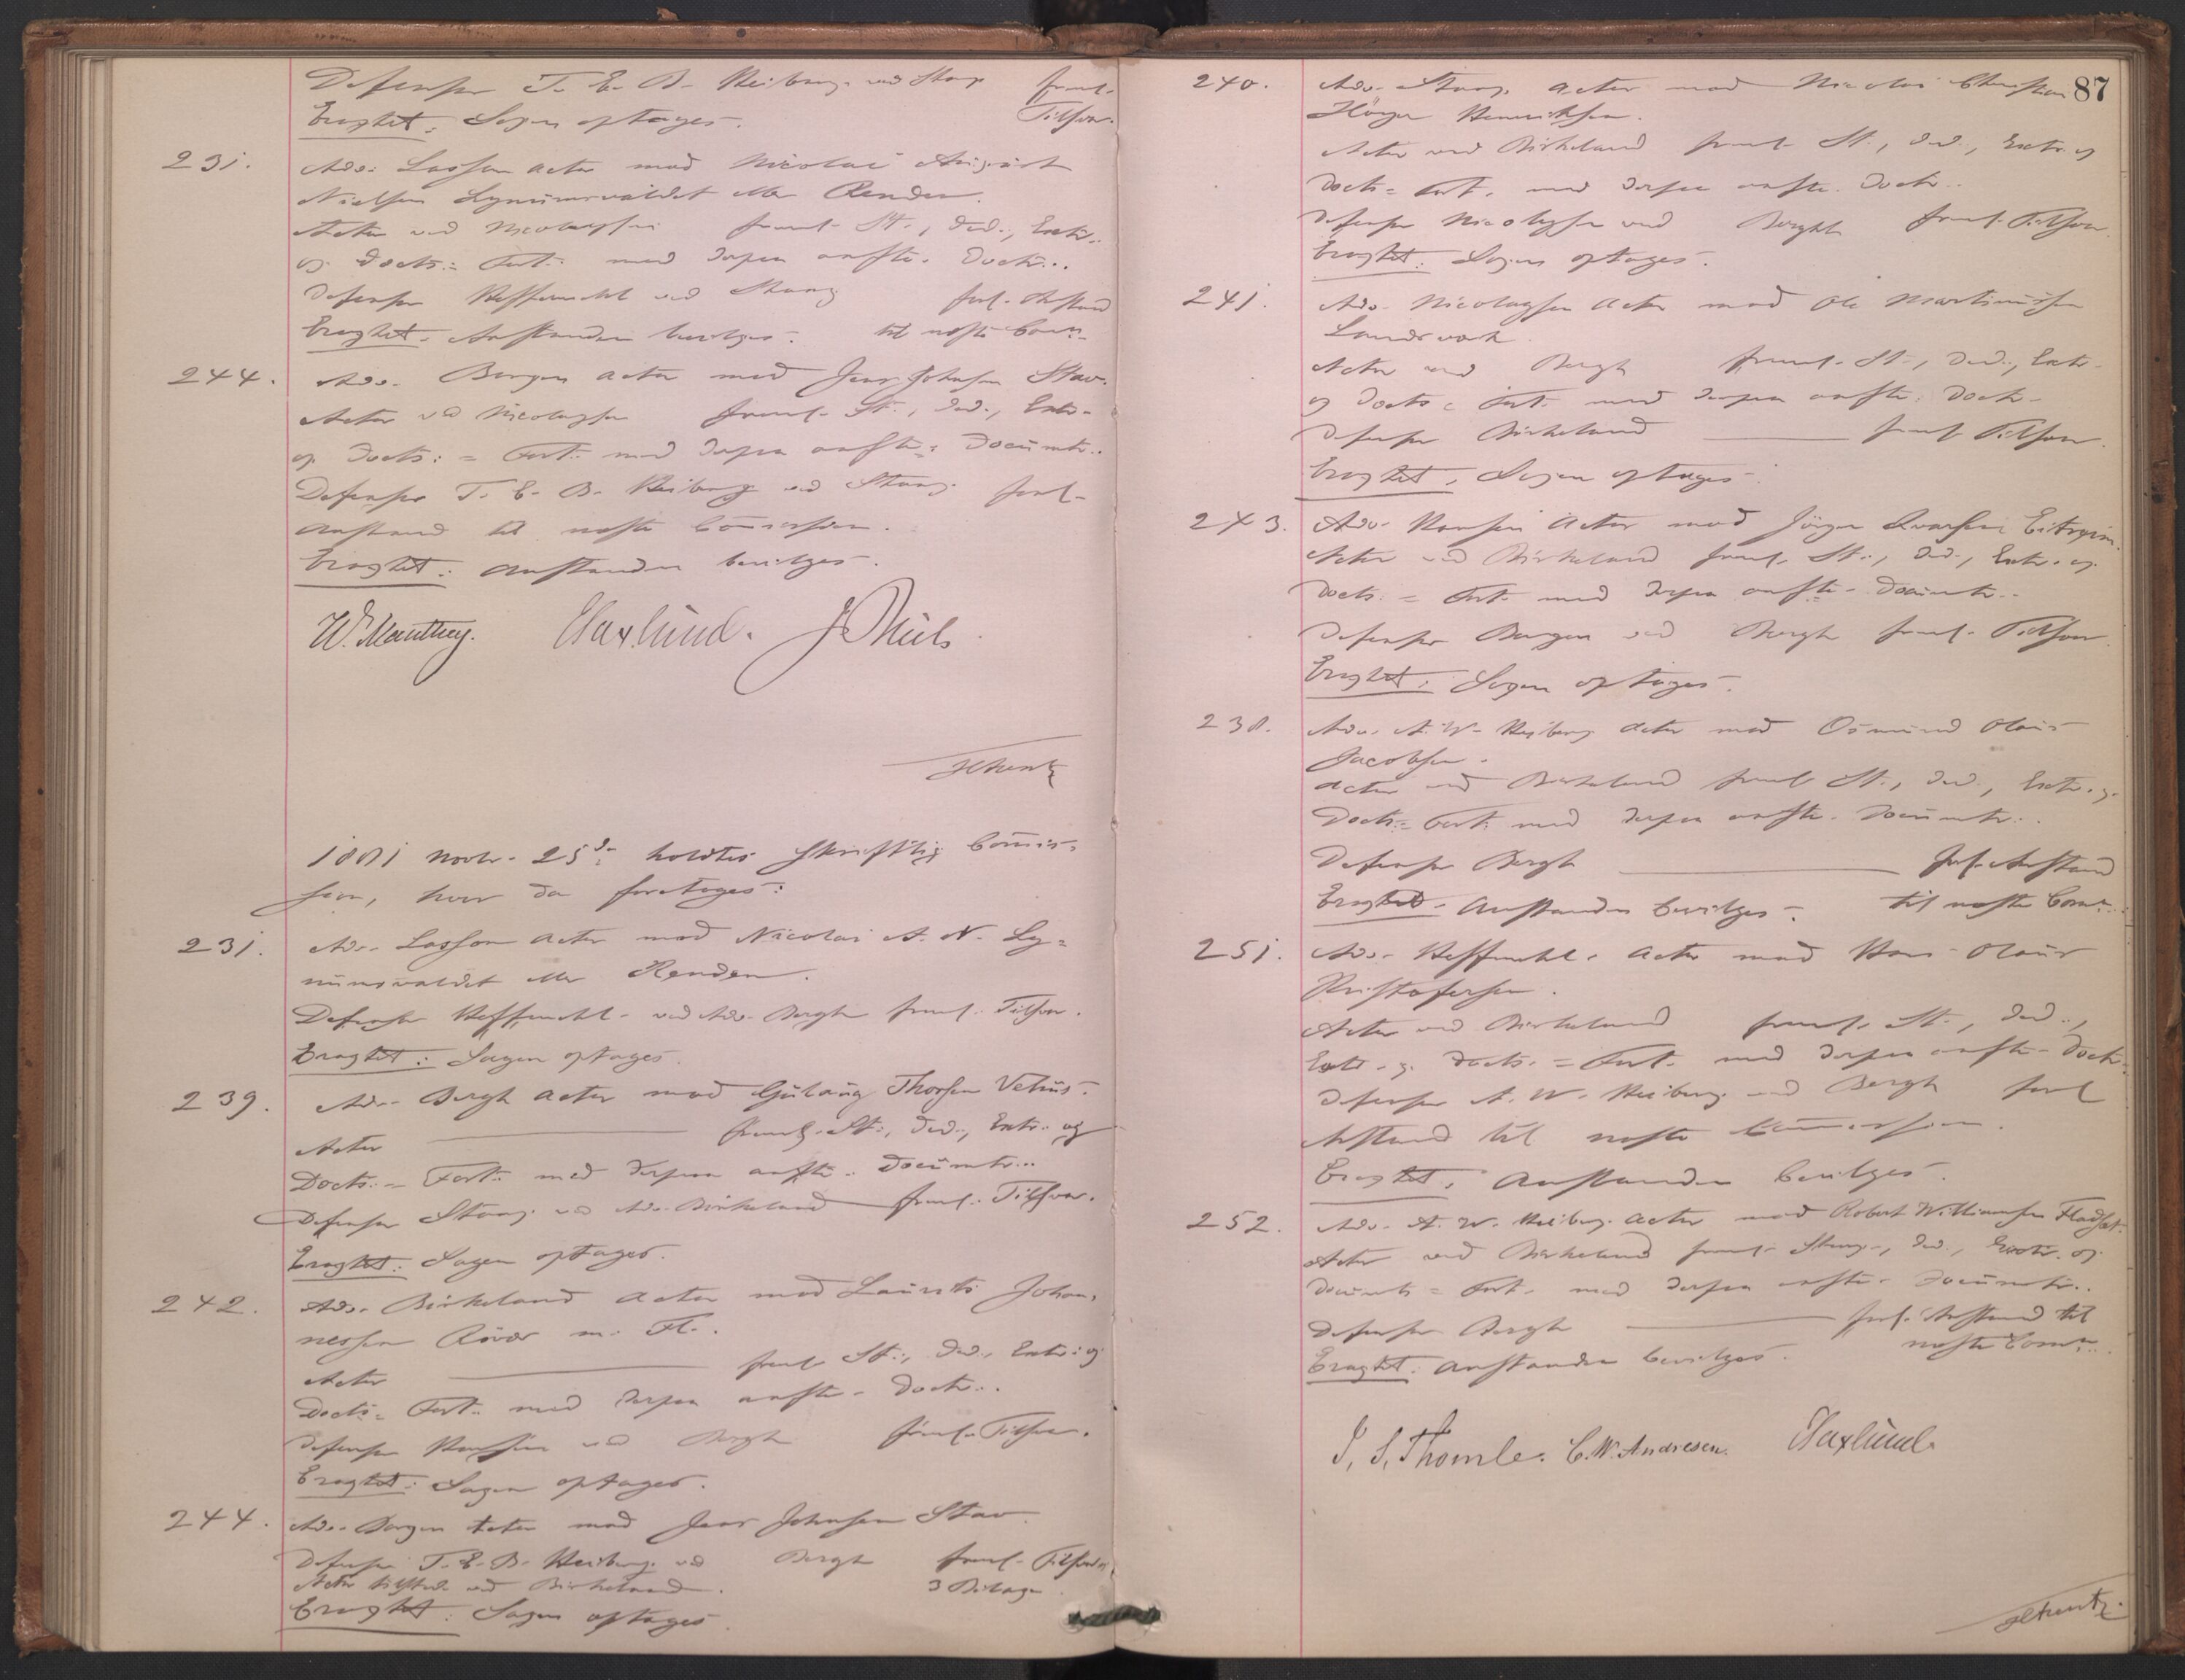 Defensor T. E. B. Heiberg ved Stang freml.
Eragtet: Sagen optages. Tilsvar.
231. Adv. Lasson Actor mod Nicolai August
Nielsen Lynumsvaldet eller Renden.
Actor ved Nicolaysen freml. St., Ded., Extr.
og Docts. = Fort. med derpaa anførte Doctr..
Defensor Hesselberg ved Stang forl. Anstand
Eragtet. Anstanden bevilges. til næste Comn.
244. Adv. Bergen Actor mod Jens Johnsen Stav.
Actor ved Nicolaysen freml. St., Ded., Extr.
og Docts. = Fort. med derpaa anførte Documtr..
Defensor T. E. B. Heiberg ved Stang forl.
Anstand til næste Commission.
Eragtet: Anstanden bevilges.
W. Manthey. Haxlund. J Thiis
1881 Novbr. 25de holdtes skriftlig Commis-
sion, hvor da foretoges:
231. Adv. Lasson Actor mod Nicolai A. N. Ly=
numsvaldet eller Renden.
Defensor ved Adv. Bergh freml. Tilsvar.
Eragtet: Sagen optages.
239. Adv. Bergh Actor mod Gulaug Thorsen Vehus.
Actor freml. St., Ded., Extr. og
Docts. = Fort. med derpaa anførte Documtr...
Defensor Stang ved Adv. Birkeland freml. Tilsvar.
Eragtet: Sagen optages.
242. Adv. Birkeland Actor mod Laurits Johan-
nessen Røvær m. Fl..
Actor freml. St., Ded., Extr. og
Docts. = Fort. med derpaa anførte Doctr..
Defensor Hansen ved Bergh freml. Tilsvar.
Eragtet: Sagen optages.
244. Adv. Bergen Actor mod Jens Johnsen Stav.
Defensor T. E. B. Heiberg ved Bergh freml. Tilsvar,
Actor tilstede ved Birkeland. 3 Bilage
Eragtet: Sagen optages.
87
240. Adv. Stang Actor mod Nicolai Christian
Henriksen.
Actor ved Birkeland freml. St., Ded., Extr. og
Docts. = Fort. med derpaa anførte Doctr..
Defensor Nicolaysen ved Bergh freml. Tilsvar.
Eragtet: Sagen optages.
241. Adv. Nicolaysen Actor mod Ole Martinussen
Landsværk.
Actor ved Bergh freml. St., Ded., Extr.
og Docts. = Fort. med derpaa anførte Doctr.
Defensor Birkeland freml. Tilsvar.
Eragtet. Sagen optages.
243. Adv. Hansen Actor mod Jørgen Eitreim.
Actor ved Birkeland freml. St., Ded., Extr. og
Docts. = Fort. med derpaa anførte Documtr..
Defensor Bergen ved Bergh freml. Tilsvar.
Eragtet: Sagen optages.
238. Adv. A. W. Heiberg Actor mod Osmund Olaus
Jacobsen.
Actor ved Birkeland freml. St., Ded., Extr. og
Docts. = Fort. med derpaa anførte Documtr..
Defensor Bergh forl. Anstand
Eragtet. Anstanden bevilges. til næste Comn..
251. Adv. Actor mod Hans Olaus
Kristofersen.
Actor ved Birkeland freml. St., Ded.,
Extr. og Docts. = Fort. med derpaa anførte Doctr.
Defensor A. W. Heiberg ved Bergh forl.
Anstand til næste Commission.
Eragtet. Anstanden bevilges.
252. Adv. A. W. Heiberg Actor mod Robert Williamsen Fladset.
Actor ved Birkeland freml. Stevng., Ded., Extr. og
Documts. = Fort. med derpaa anførte Documtr..
Defensor Bergh forl. Anstand til
Eragtet. Anstanden bevilges. næste Comn..
J. S. Thomle. C. W. Andresen. Haxlund.